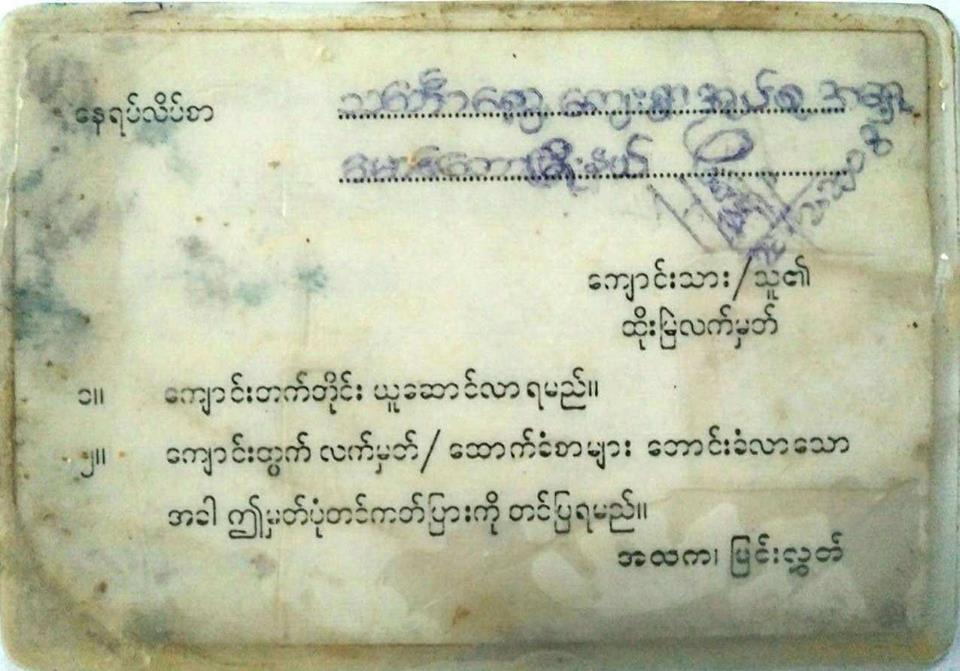 နေရပ်လိပ်စာ
ကျေးရွာအုပ်စု
ကျောင်းသား/သူ၏
ထိုးမြဲလက်မှတ်
၁။ ကျောင်းတက်တိုင်း ယူဆောင်လာရမည်။
၂။ ကျောင်းထွက် လက်မှတ်/ ထောက်ခံစာများ တောင်းခံလာသော
အခါ ဤမှတ်ပုံတင်ကတ်ပြားကို တင်ပြရမည်။
အထက၊ မြင်းလွှတ်